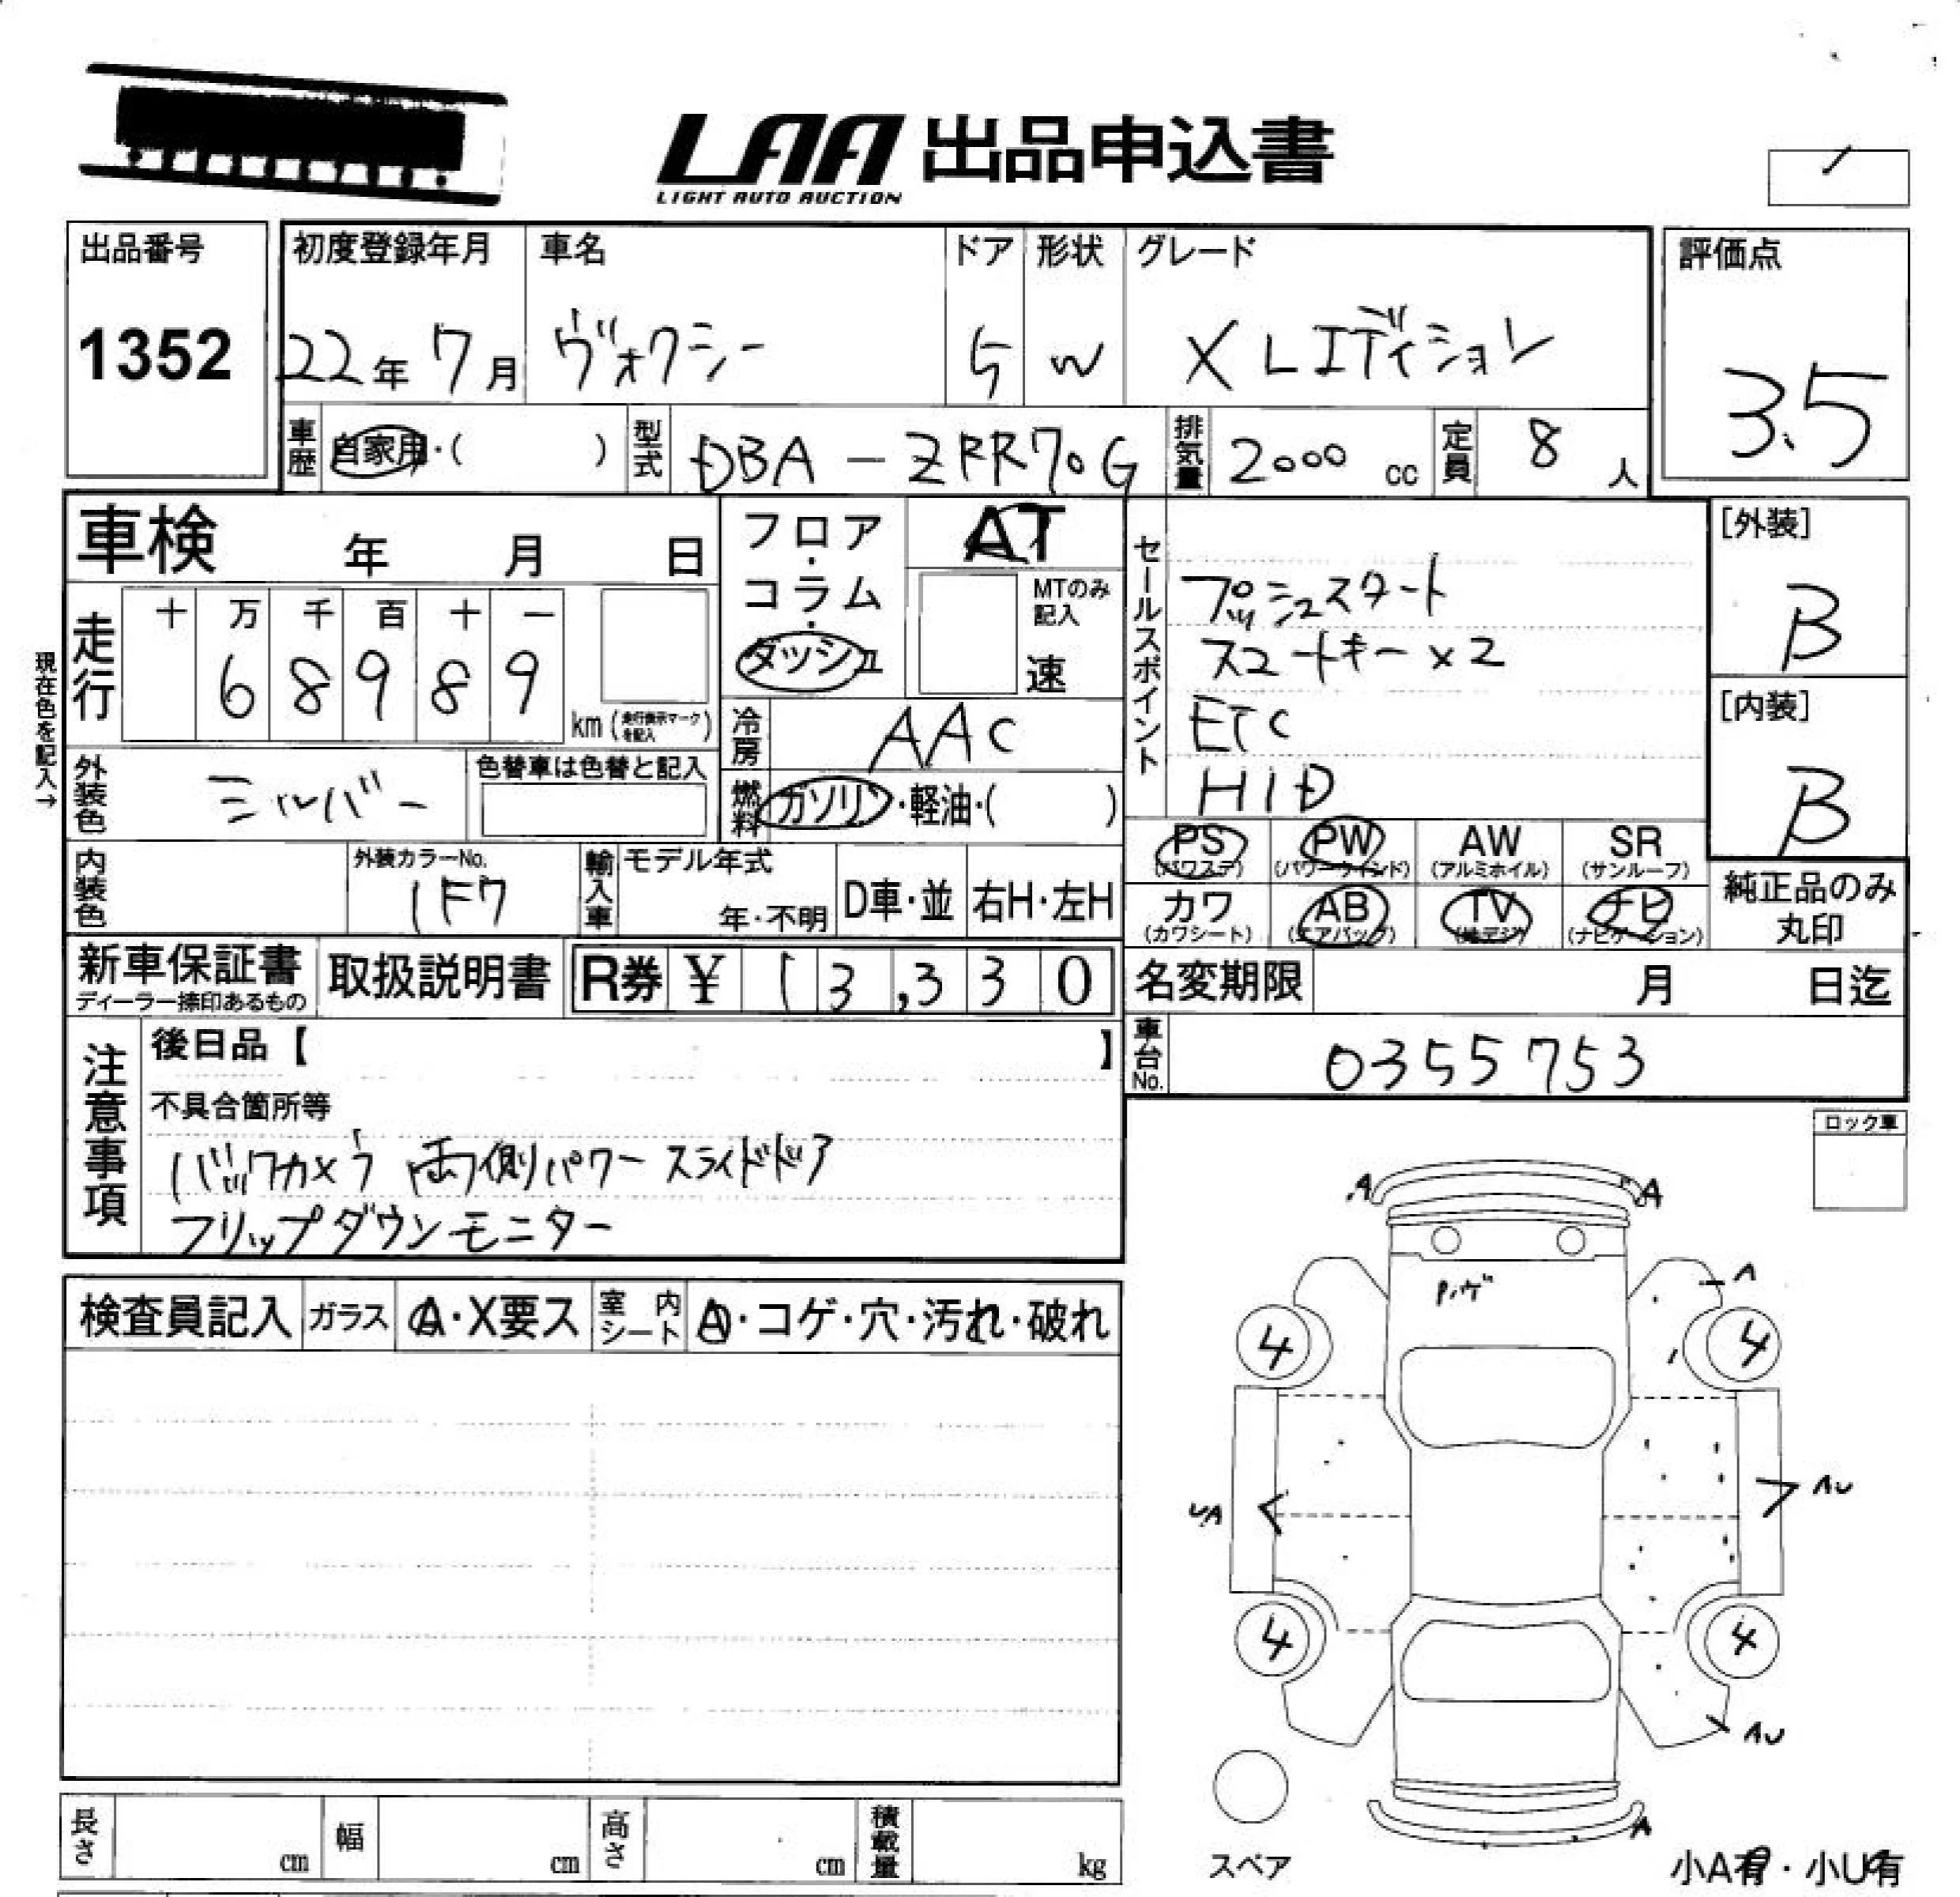 LAA 出品申込書
LIGHT AUTO AUCTION
出品番号
1352
初度登録年月
22年 7月
車名
ヴォクシー
ドア
5
形状
W
グレード
X Lエディション
評価点
3.5
車歴
自家用・( )
型式
DBA-ZRR70G
排気量
2000 cc
定員
8 人
車検 年 月 日
フロア・コラム・ダッシュ
AT
MTのみ記入
速
セールスポイント
プッシュスタート
スマートキー×2
ETC
HID
[外装]
B
[内装]
B
現在色を記入→
走行
十 万 千 百 十 一
6 8 9 8 9
km (走行表示マークを記入)
冷房
AAC
外装色
シルバー
色替車は色替と記入
燃料
ガソリン・軽油・( )
PS
(パワステ)
PW
(パワーウィンド)
AW
(アルミホイル)
SR
(サンルーフ)
カワ
(カワシート)
AB
(エアバッグ)
TV
(地デジ)
ナビ
(ナビゲーション)
純正品のみ
丸印
内装色
外装カラーNo.
1F7
輸入車
モデル年式
年・不明
D車・並
右H・左H
新車保証書
ディーラー捺印あるもの
取扱説明書
R券 ¥ 13,330
名変期限 月 日迄
車台No.
0355753
注意事項
後日品【 】
不具合箇所等
バックカメラ 両側パワースライドドア
フリップダウンモニター
ロック車
検査員記入
ガラス
A・X要ス
室内シート
A・コゲ・穴・汚れ・破れ
A
A
A
4
4
UA
AU
4
4
AU
A
スペア
小A有・小U有
長さ cm
幅 cm
高さ cm
積載量 kg